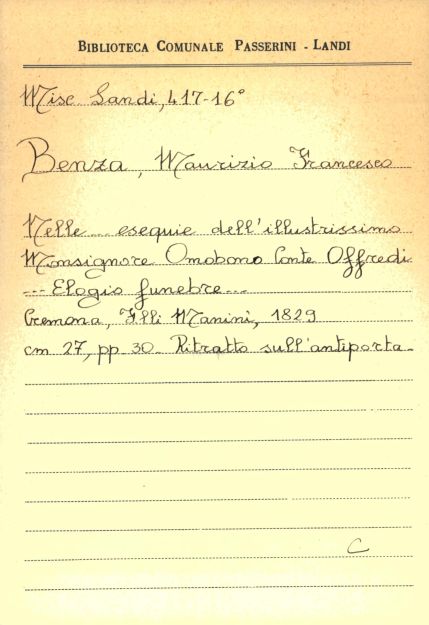 BIBLIOTECA COMUNALE PASSERINI - LANDI
Misc. Landi, 417-16°
Benza, Maurizio Francesco
Nelle esequie dell'illustrissimo
Monsignore Omobono Conte Offredi
--- Elogio funebre ---
Cremona, F.lli Manini, 1829
cm 27, pp. 30 Ritratto sull'antiporta.
C